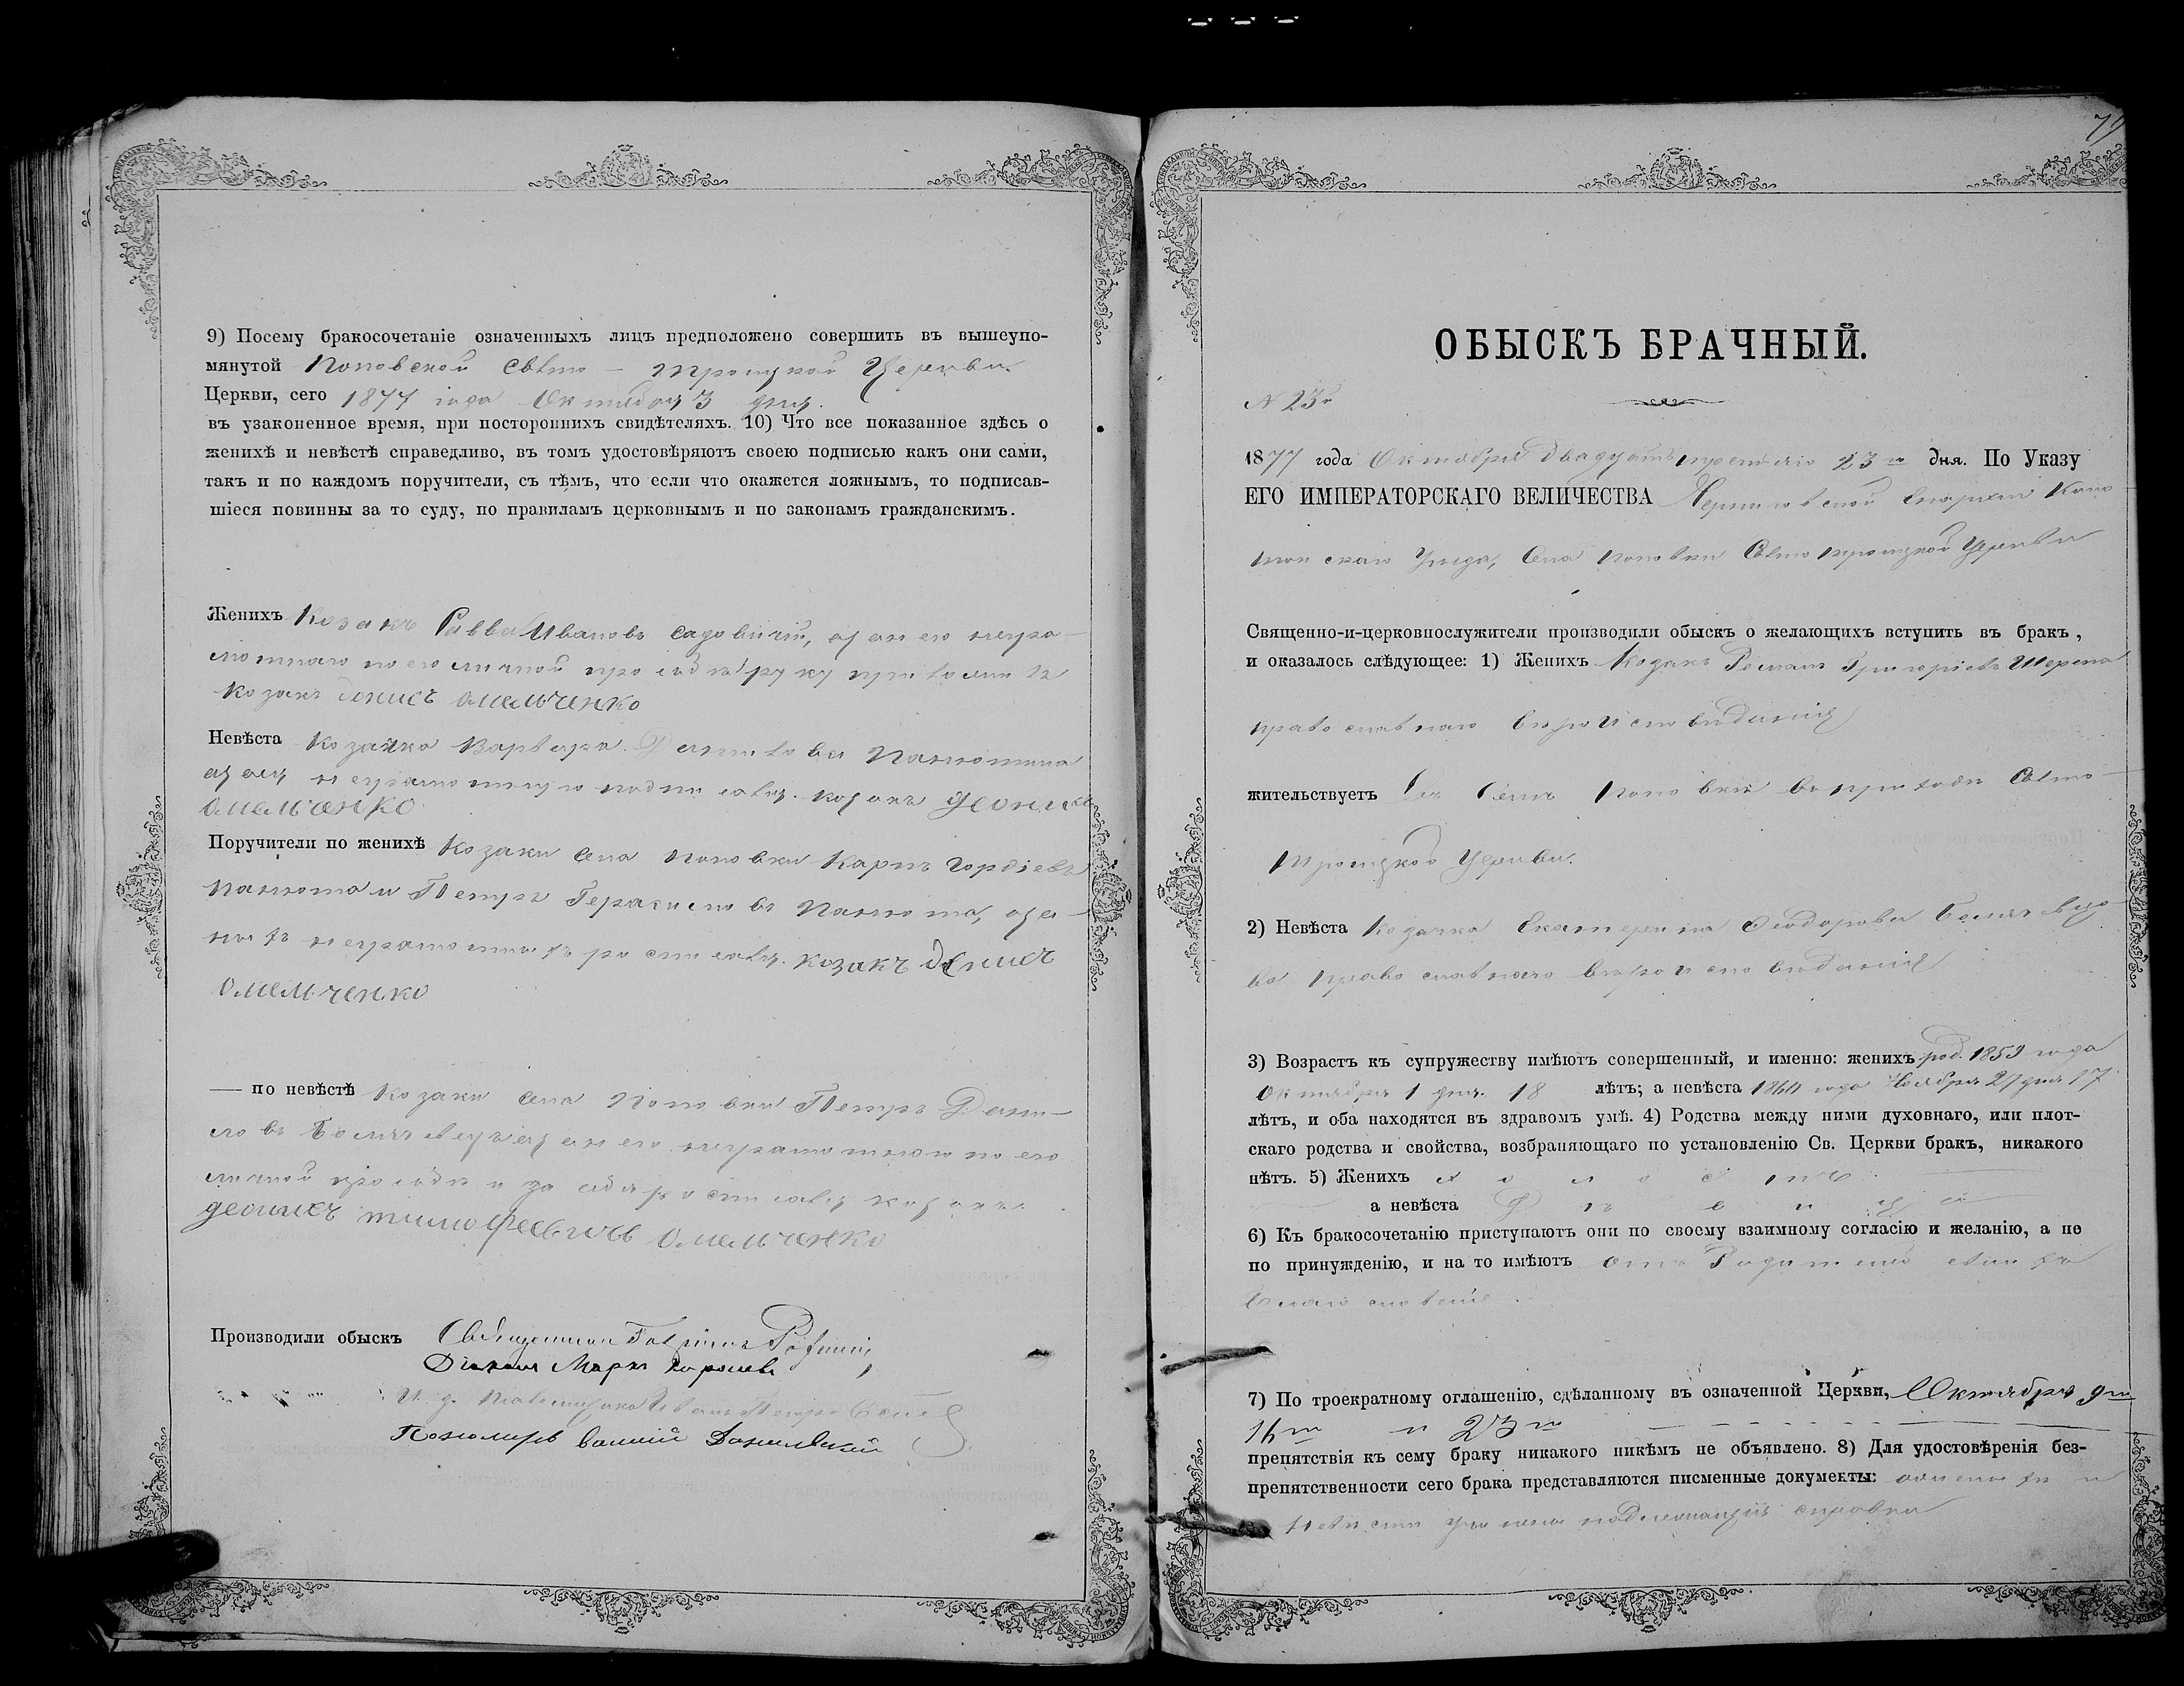 9) Посему бракосочетаніе означенныхъ лицъ предположено совершить въ вышеупо-
мянутой Поповской Свято-Троицкой Церкви
Церкви, сего 1877 года Октября 3 дня.
въ узаконенное время, при постороннихъ свидѣтеляхъ. 10) Что все показанное здѣсь о
женихѣ и невѣстѣ справедливо, въ томъ удостовѣряютъ своею подписью какъ они сами,
такъ и по каждомъ поручители, съ тѣмъ, что если что окажется ложнымъ, то подписав-
шіеся повинны за то суду, по правиламъ церковнымъ и по законамъ гражданскимъ.
Женихъ Козакъ Савва Ивановъ Садовничій, а за него негра-
мотнаго по его личной прозьбѣ руку приложилъ
Козакъ Денисъ Омельченко
Невѣста Козачка Варвара Панютина
а за ея неграмотную подписался козакъ Деонисъ
Омельченко
Поручители по женихѣ Козаки села Поповки Карпъ Гордіевъ
Панюта и Петръ Герасимовъ Панюта, а за
нихъ неграмотныхъ росписался козакъ Денисъ
Омельченко
— по невѣстѣ Козаки села Поповки Петръ Дани-
ловъ а за него неграмотного по его
личной прозьбѣ и за себя росписался козакъ
Деонисъ Тимофеевичъ Омельченко
Производили обыскъ Священникъ
Діаконъ Марко
И. д. Псаломщика Иванъ
Пономарь
79
ОБЫСКЪ БРАЧНЫЙ.
N 23й
1877 года Октября двадцать третьяго 23го дня. По Указу
ЕГО ИМПЕРАТОРСКАГО ВЕЛИЧЕСТВА Черниговской Епархіи Коно-
топскаго Уѣзда, Села Поповки Свято Троицкой Церкви
Священно-и-церковнослужители производили обыскъ о желающихъ вступить въ бракъ,
и оказалось слѣдующее: 1) Женихъ Козакъ Романъ Григоріевъ
православнаго вѣроисповѣданія
жительствуетъ Въ Селѣ Поповки въ приходѣ Свято-
Троицкой Церкви.
2) Невѣста Козачка Екатерина Феодорова
православнаго вѣроисповѣданія
3) Возрастъ къ супружеству имѣютъ совершенный, и именно: женихъ род. 1859 года
Октября 1 дня. 18 лѣтъ; а невѣста 1860 года Ноября 17
лѣтъ, и оба находятся въ здравомъ умѣ. 4) Родства между ними духовнаго, или плот-
скаго родства и свойства, возбраняющаго по установленію Св. Церкви бракъ, никакого
нѣтъ. 5) Женихъ холостъ
а невѣста Дѣвица
6) Къ бракосочетанію приступаютъ они по своему взаимному согласію и желанію, а не
по принужденію, и на то имѣютъ отъ Родителей своихъ
благословеніе.
7) По троекратному оглашенію, сдѣланному въ означенной Церкви, Октября 9го
16го и 23го
препятствія къ сему браку никакого никѣмъ не объявлено. 8) Для удостовѣренія без-
препятственности сего брака представляются писменные документы: о женихѣ и
невѣстѣ учинены надлежащія справки